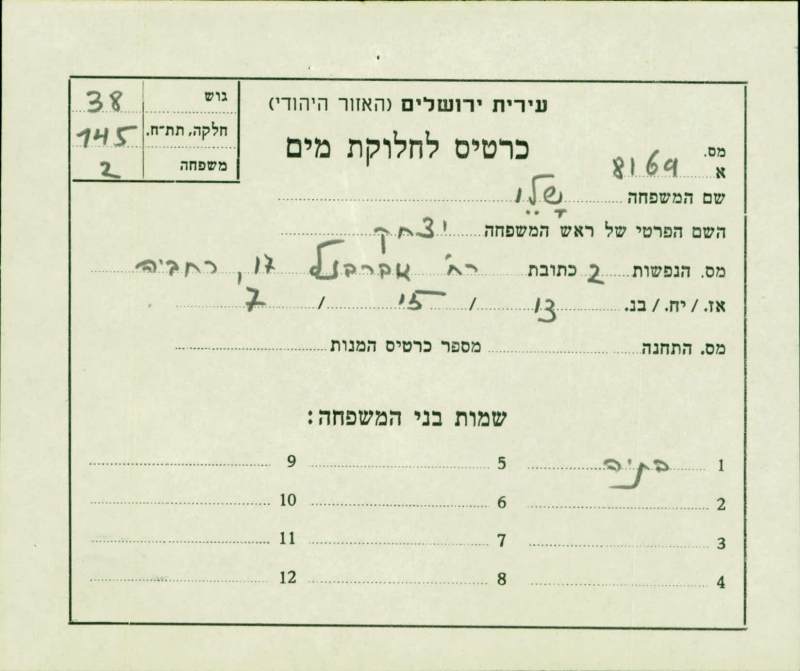 עירית ירושלים (האזור היהודי)
כרטיס לחלוקת מים
גוש 38
חלקה, תת־ח. 145
משפחה 2
מס.
א 8169
שם המשפחה שָׁלֵו
השם הפרטי של ראש המשפחה יצחק
מס. הנפשות 2 כתובת רח' אברבנל 17, רחביה
אז. / יח. / בנ. 13 / 15 / 7
מס. התחנה מספר כרטיס המנות
שמות בני המשפחה:
1 בתיה 5 9
2 6 10
3 7 11
4 8 12